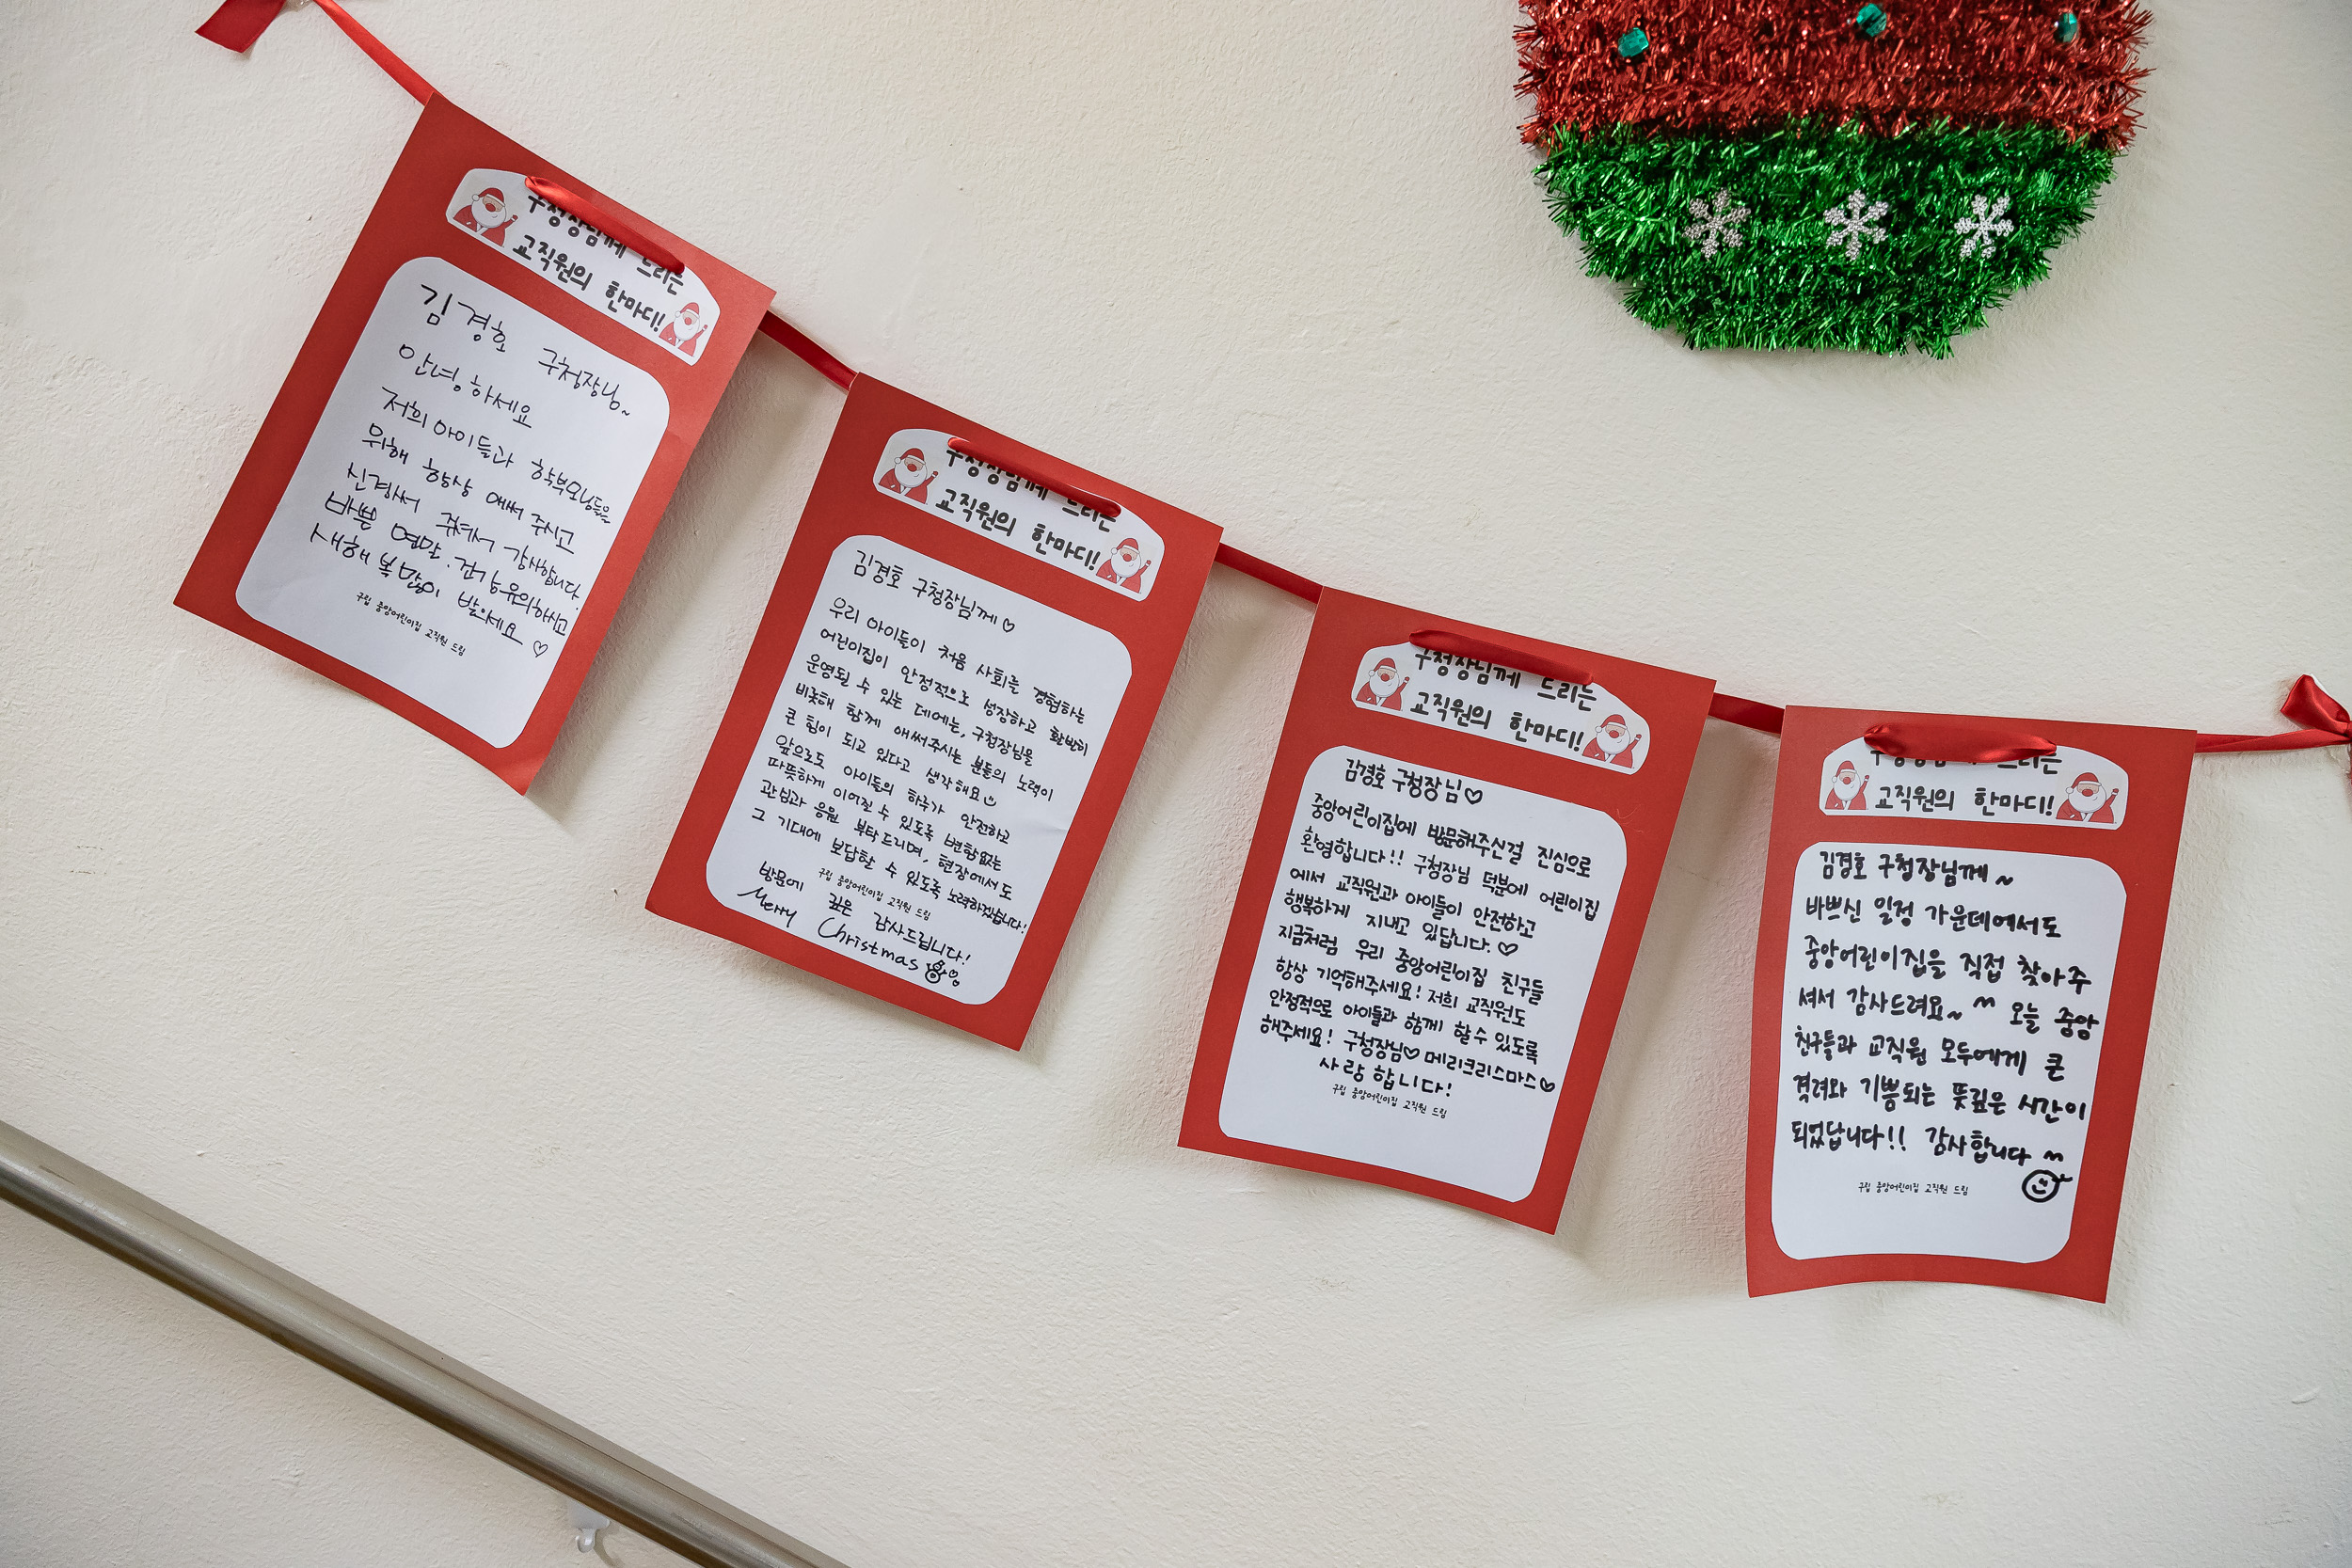 구청장님께 드리는
교직원의 한마디!
김경호 구청장님~
안녕하세요
저희 아이들과 학부모님들을
위해 항상 애써 주시고
신경써 주셔서 감사합니다.
바쁜 연말. 건강유의하시고
새해 복 많이 받으세요♡
구립 중앙어린이집 교직원 드림
구청장님께 드리는
교직원의 한마디!
김경호 구청장님께♡
우리 아이들이 처음 사회를 경험하는
어린이집이 안정적으로 성장하고 활발히
운영될 수 있는 데에는, 구청장님을
비롯해 함께 애써주시는 분들의 노력이
큰 힘이 되고 있다고 생각해요
앞으로도 아이들의 하루가 안전하고
따뜻하게 이어질 수 있도록 변함없는
관심과 응원 부탁드리며, 현장에서도
그 기대에 보답할 수 있도록 노력하겠습니다!
구립 중앙어린이집 교직원 드림
방문에 깊은 감사드립니다!
Merry Christmas
구청장님께 드리는
교직원의 한마디!
김경호 구청장님♡
중앙어린이집에 방문해주신걸 진심으로
환영합니다!! 구청장님 덕분에 어린이집
에서 교직원과 아이들이 안전하고
행복하게 지내고 있답니다.♡
지금처럼 우리 중앙어린이집 친구들
항상 기억해주세요! 저희 교직원도
안정적으로 아이들과 함께 할 수 있도록
해주세요! 구청장님♡ 메리크리스마스♡
사랑합니다!
구립 중앙어린이집 교직원 드림
구청장님께 드리는
교직원의 한마디!
김경호 구청장님께~
바쁘신 일정 가운데에서도
중앙어린이집을 직접 찾아주
셔서 감사드려요~ ^^ 오늘 중앙
친구들과 교직원 모두에게 큰
격려와 기쁨되는 뜻깊은 시간이
되었답니다!! 감사합니다 ^^
구립 중앙어린이집 교직원 드림